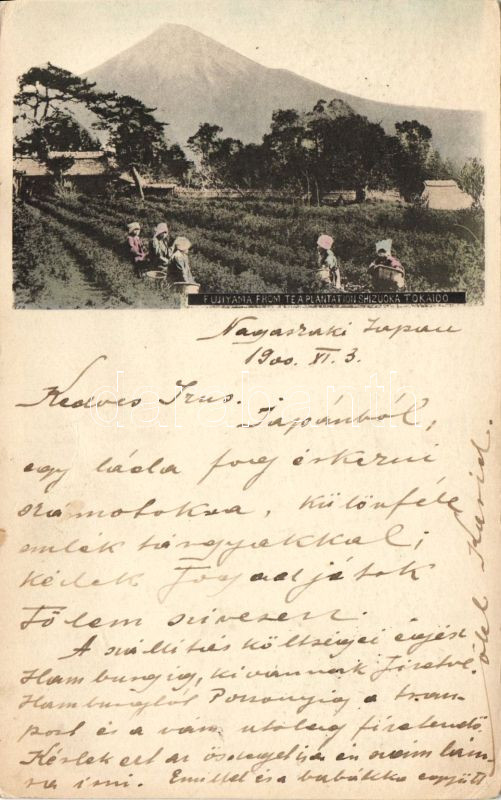 FUJIYAMA FROM TEA PLANTATION SHIZUOKA TOKAIDO
Nagaszaki Japan
1900. XI. 3.
Kedves Irus.
Japánból,
egy láda fog érkezni
számotokra, különféle
emlék tárgyakkal;
kérlek Fogadjátok
Tőlem szívesen.
A szállítás költségei egész
Hamburgig, ki vannak fizetve.
Hamburgtól Pozsonyig a trans
port és a vám utólag fizetendő.
Kérlek ezt az összeget ja én szám lám
ra írni. Emillel és a babákkal együtt
ölel